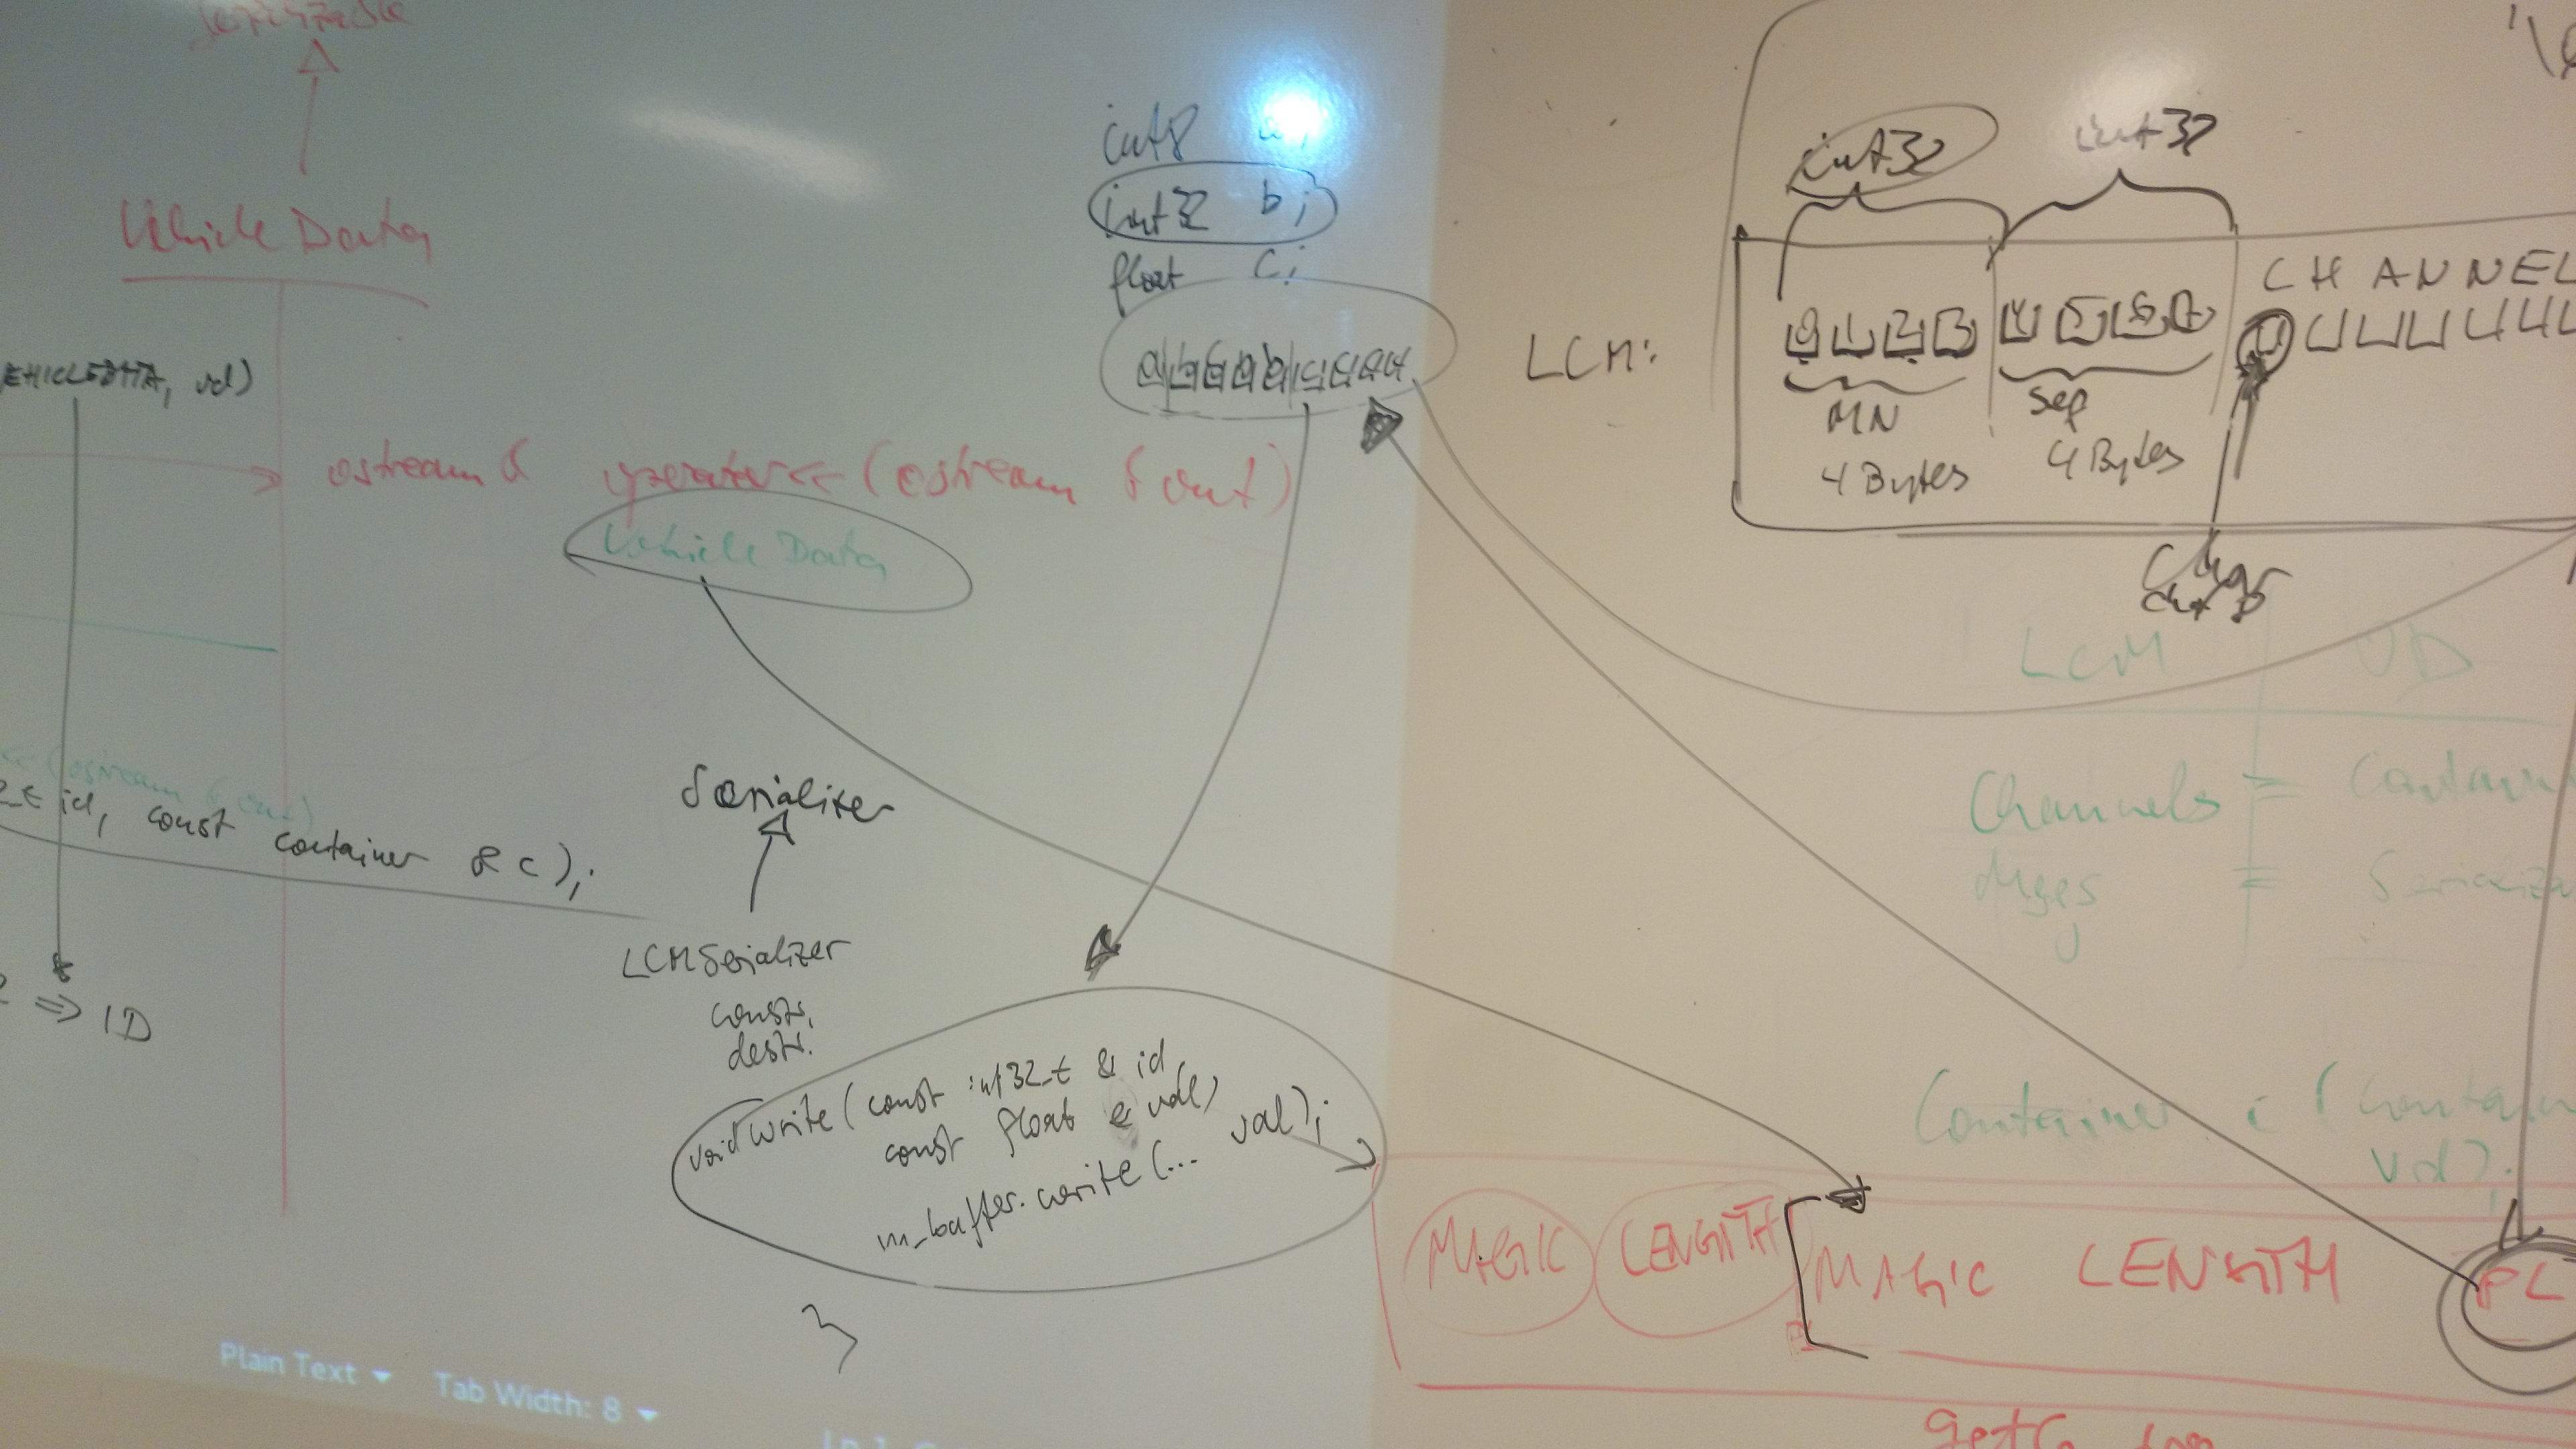 Serializable
Vehicle Data
EHICLEDATA, vd)
ostream & operator<< (ostream & out)
Vehicle Data
<< (ostream & out)
2_t id, const container & c);
=> ID
int8
int32 b;
float c;
Serializer
LCMSerializer
constr.
destr.
void write (const int32_t & id,
const float & val)
m_buffer.write (... val);
}
LCM:
int32 int32
CHANNEL
MN Seq
4 Bytes 4 Bytes
Char
LCM VD
Channels = Contain
Msges = Serializa
Container c (Contain
vd);
MAGIC LENGTH MAGIC LENGTH PL
Plain Text
Tab Width: 8